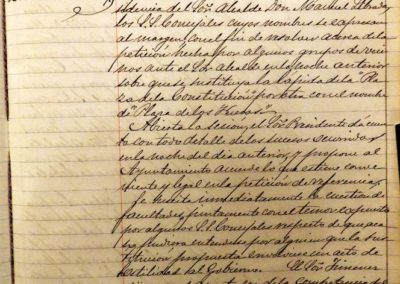 sidencia del Sor. Alcalde Don Manuel
los S.S. Concejales cuyos nombres se expresan
al margen, con el fin de resolver acerca de la
petición hecha por algunos grupos de veci-
nos ante el Sor. Alcalde en la noche anterior
sobre que se sustituya la lápida de la "Pla-
za de la Constitución" por otra con el nombre
de "Plaza de los Fueros".
Abierta la sesión, el Sor. Presidente dá cuen-
ta con todo detalle de los sucesos ocurridos
en la noche del dia anterior, y propone al
Ayuntamiento acuerde lo que estime conve-
niente y legal en la petición de referencia.
Se suscita inmediatamente la cuestión de
facultades, juntamente con el temor expuesto
por algunos S.S. Concejales respecto de que aca-
so pudiera entenderse por alguien que la sus-
titucion propuesta envolviese un acto de
hostilidad al Gobierno. El Sor. Jimenez
de la competencia del